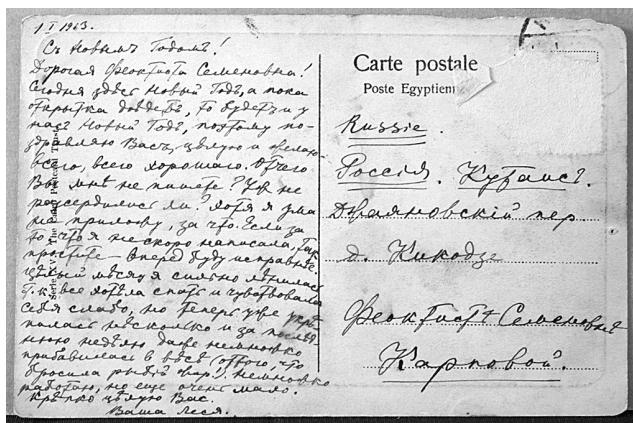 1 I 1913.
Съ Новымъ Годомъ!
Дорогая Феоктиста Семеновна!
Сегодня здѣсь Новый Годъ, а пока
открытка дойдетъ, то будетъ и у
насъ Новый Годъ, поэтому по-
здравляю Васъ, цѣлую и желаю
всего, всего хорошаго. Отчего
Вы мнѣ не пишете? Уж не
рассердились ли? Хотя я ума
не приложу, за что. Если за
то, что я не скоро написала,
простите – вперед буду исправнѣе.
Цѣлый мѣсяц я сильно лѣнилась
т. к. все хотѣла спать и чувствовала
себя слабо, но теперь уже
несколько и за послѣд-
нюю недѣлю даже немножко
прибавилась в вѣсѣ
бросила рыбій жир! немножко
работаю, но еще очень мало.
Крѣпко цѣлую Вас.
Ваша Леся.
Carte postale
Poste Egyptienne
Russie.
Россія. Кутаис.
пер.
д. Кикодзе
Феоктистѣ Семеновнѣ
Карповой.